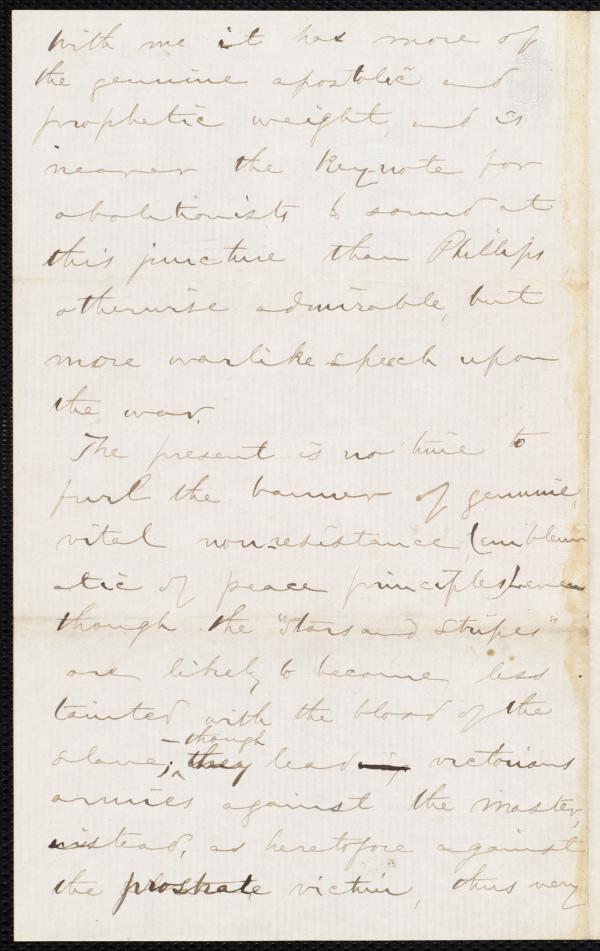 With me it has more of
the genuine apostolic and
prophetic weight, and is
nearer the Keynote for
abolitionists to sound at
this juncture than Phillips
otherwise admirable, but
more warlike speech upon
the war.
The present is no time to
furl the banner of genuine,
vital non-resistance, (emblem
atic of peace principles) even
though the "Stars and Stripes"
are likely to become less
tainted with the blood of the
– though
slave; they lead victorious
armies against the master,
instead, as heretofore against
the prostrate victim, thus very